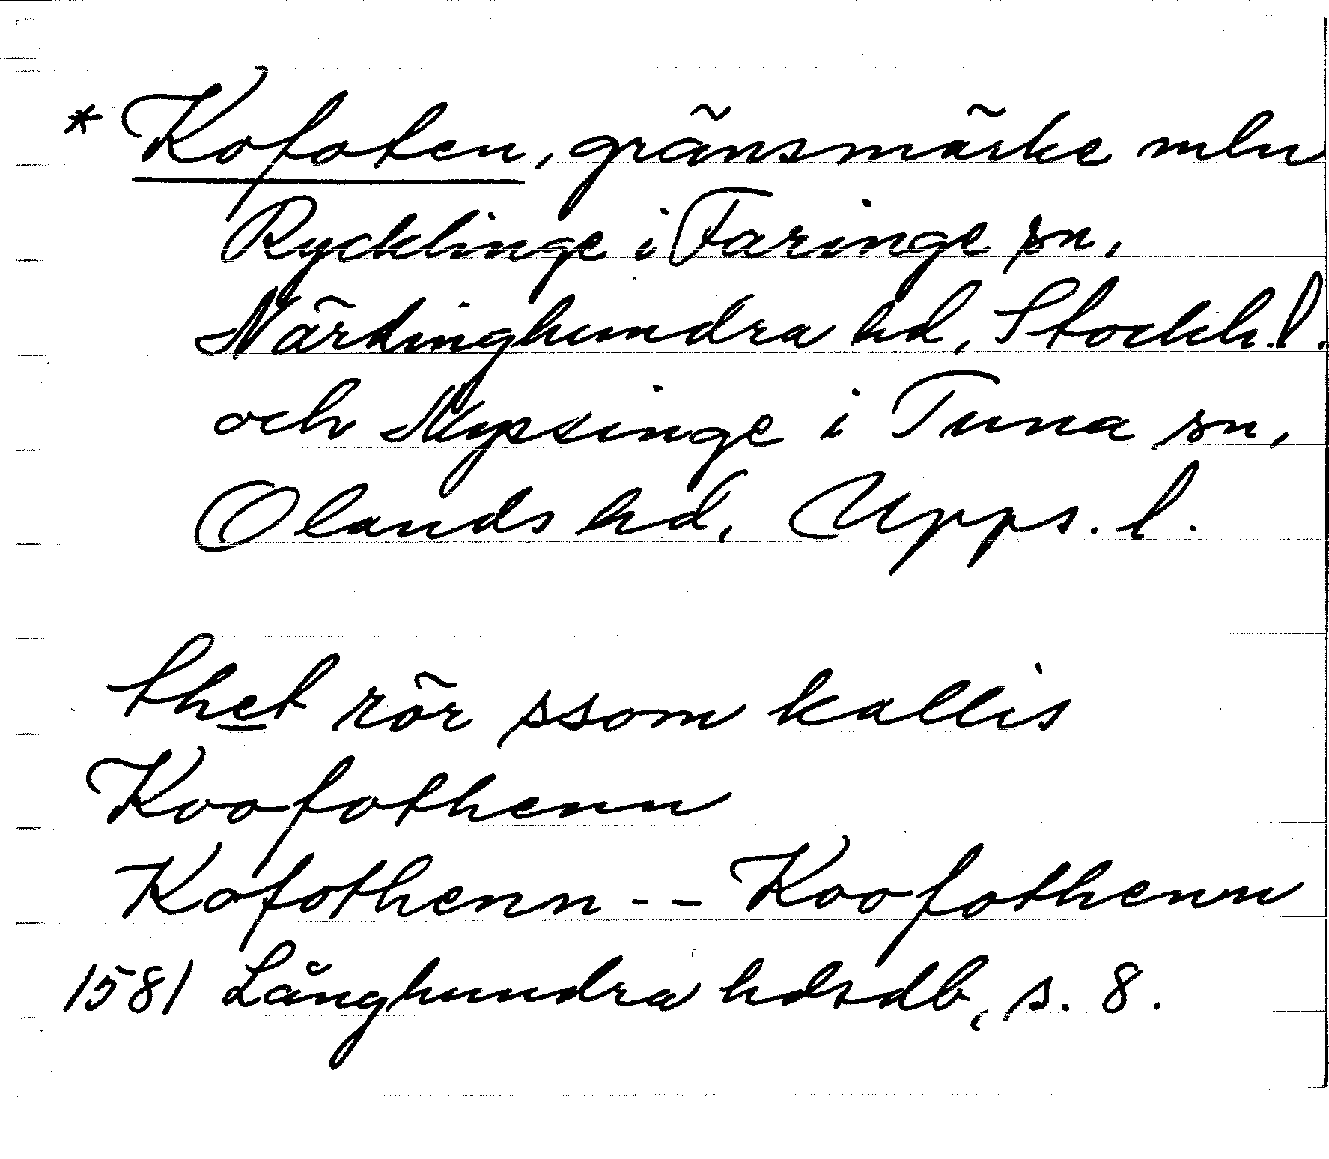 * Kofoten, gränsmärke mln
Rycklinge i Faringe sn,
Närdinghundra hd, Stockh. l.
och Mypsinge i Tuna sn,
Olands hd, Upps. l.
thet rör ssom kallis
Koofothenn
Kofothenn -- Koofothenn
1581 Långhundra hdsdb, s. 8.